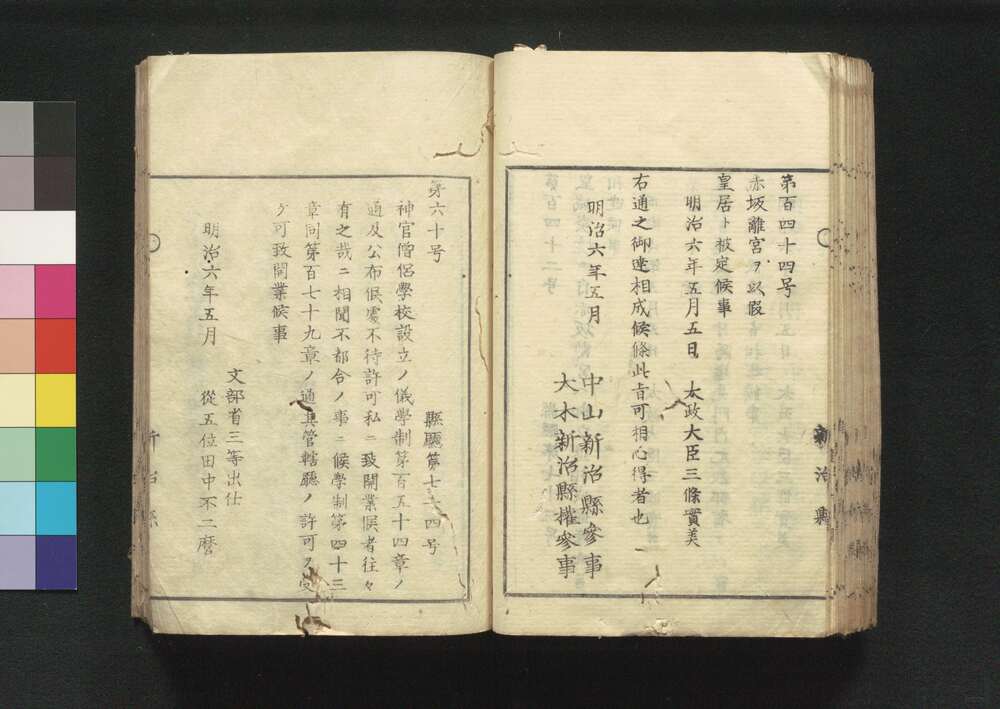 第百四十四号
赤坂離宮ヲ以假
皇居ト被定候事
明治六年五月五日 太政大臣三條實美
右通之御達相成候條此旨可相心得者也
明治六年五月 中山新治縣參事
大木新治縣權參事
新治縣
第六十号 縣廳第七十四号
神官僧侶學校設立ノ儀學制第百五十四章ノ
通及公布候處不待許可私ニ致開業候者往々
有之哉ニ相聞不都合ノ事ニ候學制第四十三
章同第百七十九章ノ通其管轄廳ノ許可ヲ受
ケ可致開業候事
明治六年五月
文部省三等出仕
從五位田中不二麿